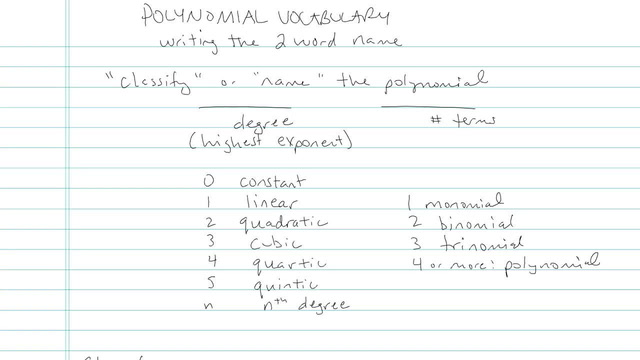 POLYNOMIAL VOCABULARY
writing the 2 word name
"classify" or "name" the polynomial
degree # terms
(highest exponent)
0 constant
1 linear 1 monomial
2 quadratic 2 binomial
3 cubic 3 trinomial
4 quartic 4 or more: polynomial
5 quintic
n nth degree